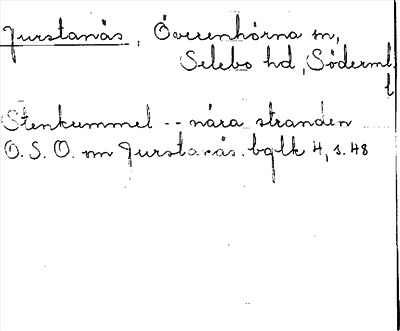 Jurstanäs, Överenhörna sn,
Selebo hd, Söderml.
l
Stenkummel -- nära stranden
O.S.O. om Jurstanäs. bglk 4, s. 48